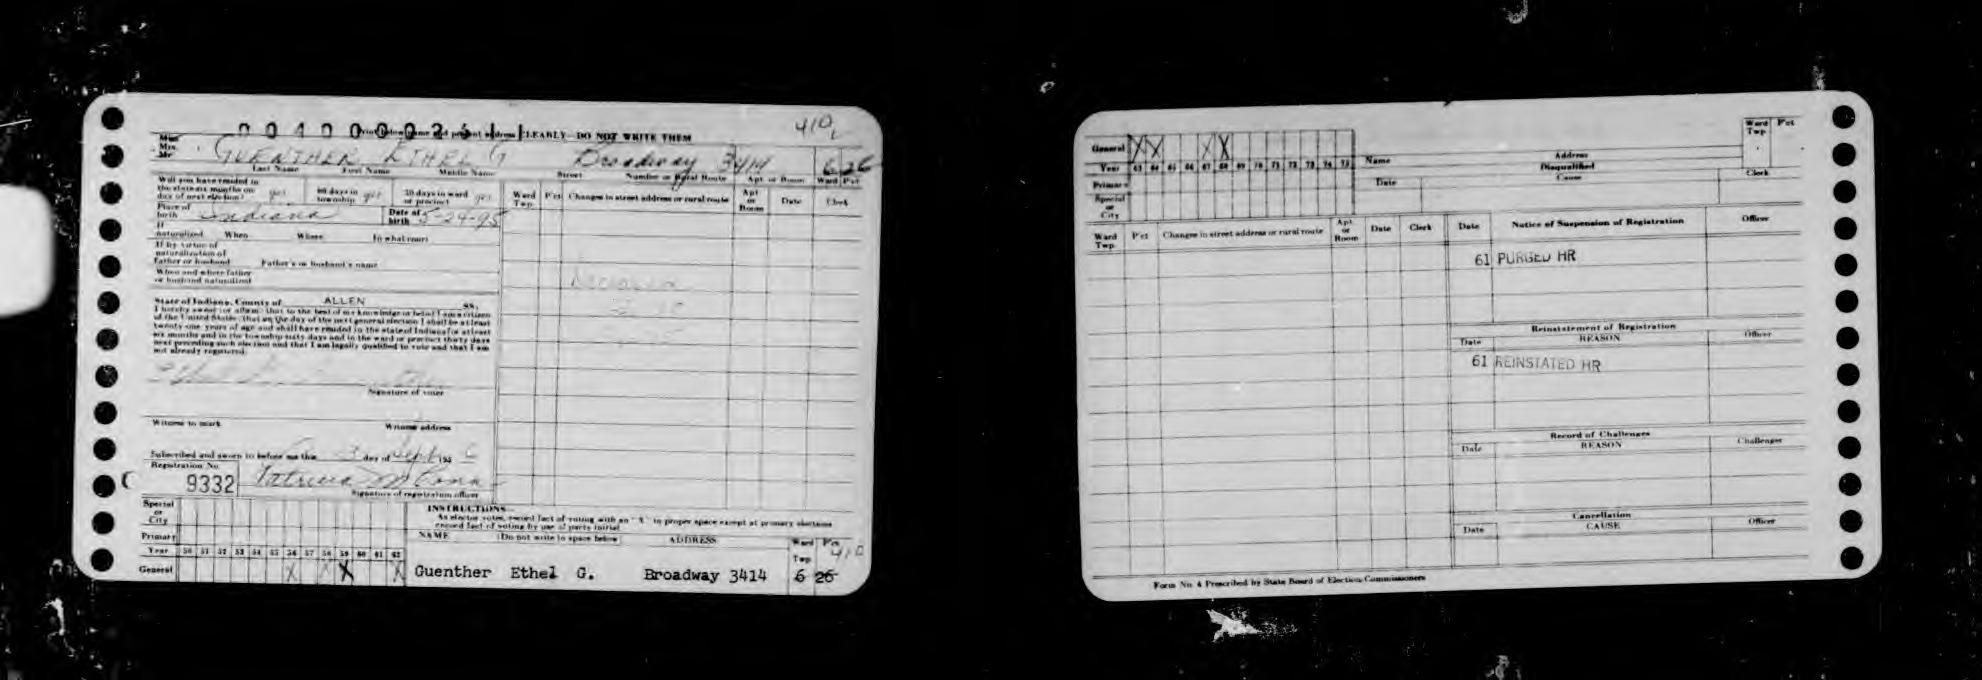 410
Print below name and present address CLEARLY—DO NOT WRITE THEM
Miss
Mrs.
Mr.
GUENTHER ETHEL G Broadway 3414 6 26
Last Name First Name Middle Name Street Number or Rural Route Apt. or Room Ward Pct
Will you have resided in the state six months on day of next election? yes
60 days in township yes
30 days in ward or precinct yes
Place of birth Indiana
Date of birth 5-24-95
If naturalized When Where In what court
If by virtue of naturalization of Father or husband Father's or husband's name
When and where father or husband naturalized
State of Indiana, County of ALLEN SS.
I hereby swear (or affirm) that to the best of my knowledge or belief I am a citizen
of the United States; that on the day of the next general election I shall be at least
twenty-one years of age and shall have resided in the state of Indiana for at least
six months and in the township sixty days and in the ward or precinct thirty days
next preceding such election and that I am legally qualified to vote and that I am
not already registered.
Signature of voter
Witness to mark Witness address
Subscribed and sworn to before me this 3 day of Sept 195 6
Registration No.
9332
Patricia
Signature of registration officer
Ward Twp. Pct Changes in street address or rural route Apt. or Room Date Clerk
Special or City
Primary
Year 50 51 52 53 54 55 56 57 58 59 60 61 62
General X X X X
INSTRUCTIONS
As elector votes, record fact of voting with an "X" in proper space except at primary elections
record fact of voting by use of party initial
NAME (Do not write in space below) ADDRESS Ward Twp. Pct
410
Guenther Ethel G. Broadway 3414 6 26
General X X X X
Year 63 64 65 66 67 68 69 70 71 72 73 74 75
Primary
Special or City
Name Address Ward Twp. Pct
Disqualified
Date Cause Clerk
Ward Twp. Pct Changes in street address or rural route Apt. or Room Date Clerk
Date Notice of Suspension of Registration Officer
61 PURGED HR
Reinstatement of Registration
Date REASON Officer
61 REINSTATED HR
Record of Challenges
Date REASON Challenger
Cancellation
Date CAUSE Officer
Form No. 4 Prescribed by State Board of Election Commissioners